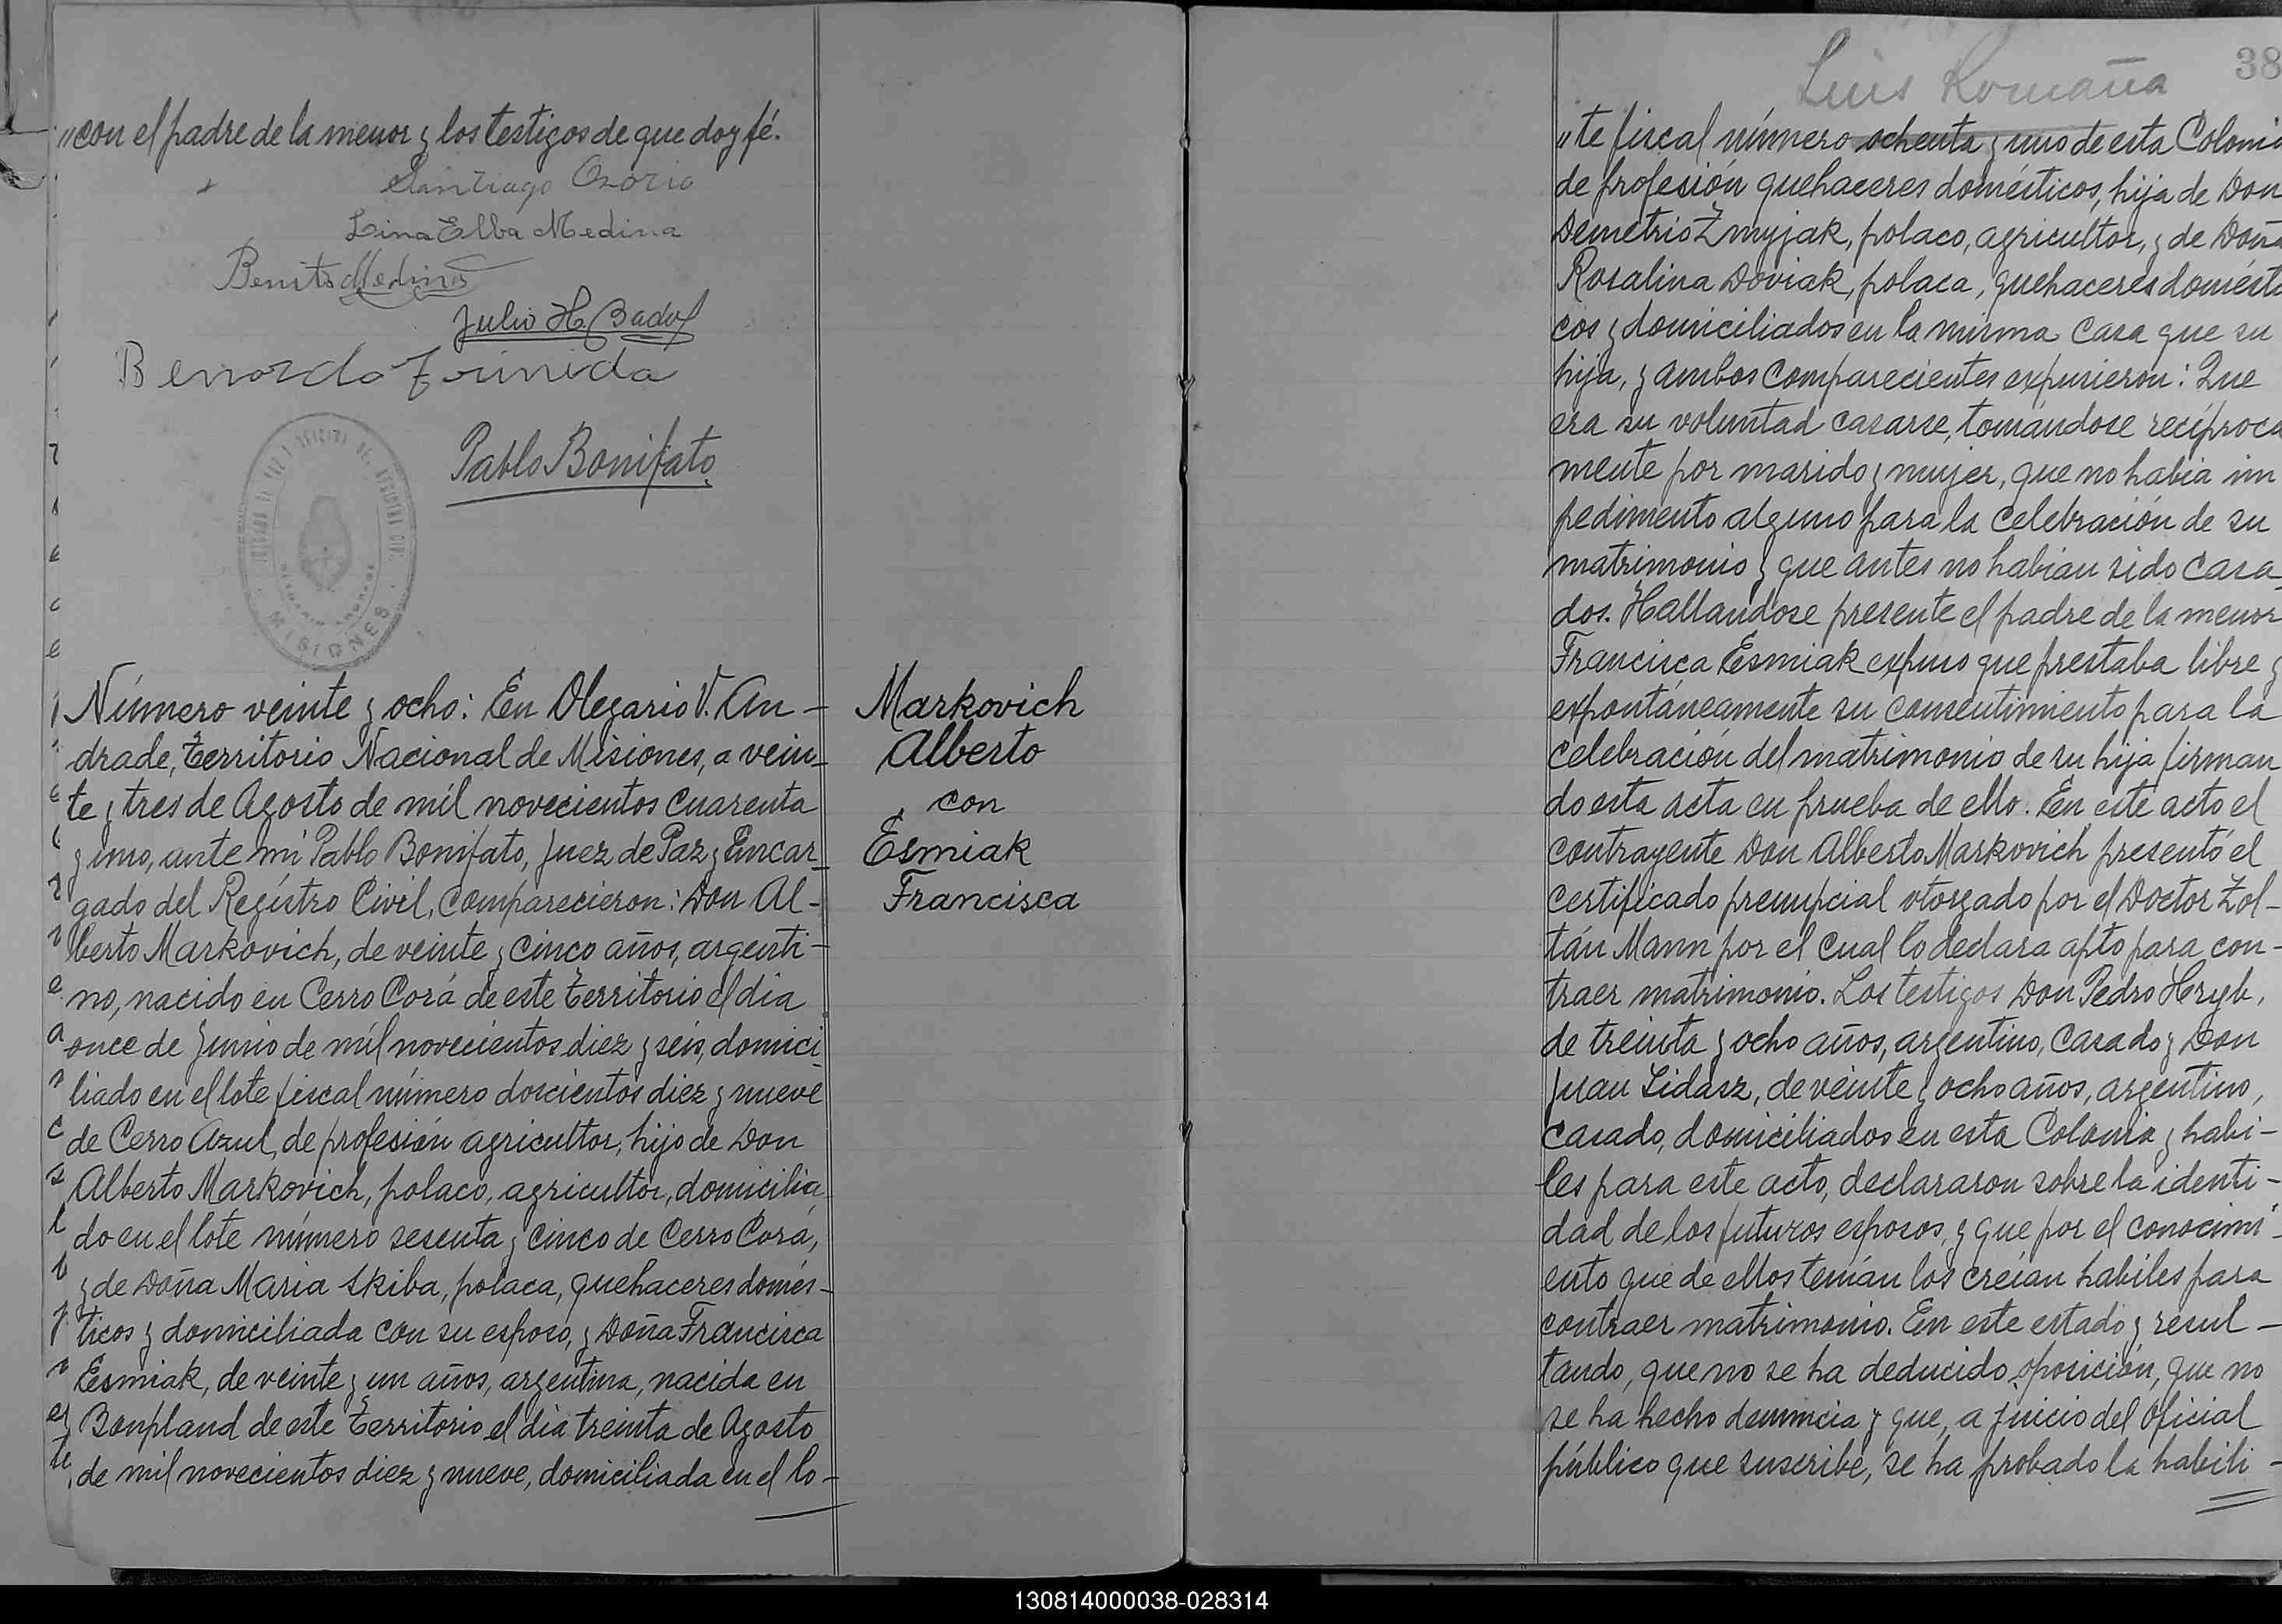 "con el padre de la menor y los testigos de que doy fé.
Santiago Osorio
Lina Elba Medina
Benito Medina
Julio H. Baduf
Benordo Trinida
Pablo Bonifato
MISIONES
Número veinte y ocho: En Olegario V. An-
drade, Territorio Nacional de Misiones, a vein-
te y tres de Agosto de mil novecientos cuarenta
y uno, ante mí Pablo Bonifato, Juez de Paz y Encar-
gado del Registro Civil, comparecieron: Don Al-
berto Markovich, de veinte y cinco años, argenti-
no, nacido en Cerro Corá de este Territorio el dia
once de Junio de mil novecientos diez y seis, domici-
liado en el lote fiscal número doscientos diez y nueve
de Cerro Azul, de profesión agricultor, hijo de Don
Alberto Markovich, polaco, agricultor, domicilia-
do en el lote número sesenta y cinco de Cerro Corá,
y de Doña Maria Skiba, polaca, quehaceres domés-
ticos y domiciliada con su esposo, y Doña Francisca
Esmiak, de veinte y un años, argentina, nacida en
Bonpland de este Territorio el dia treinta de Agosto
de mil novecientos diez y nueve, domiciliada en el lo-
Markovich
Alberto
con
Esmiak
Francisca
Luis Romaña
38
"te fiscal número ochenta y uno de esta Colonia
de profesión quehaceres domésticos, hija de Don
Demetrio Zmyjak, polaco, agricultor, y de Doña
Rosalina Doviak, polaca, quehaceres domésti
cos y domiciliados en la misma casa que su
hija, y ambos comparecientes expusieron: Que
era su voluntad casarse, tomándose recíproca
mente por marido y mujer, que no habia im
pedimento alguno para la celebración de su
matrimonio y que antes no habian sido casa-
dos. Hallandose presente el padre de la menor
Francisca Esmiak expuso que prestaba libre y
expontáneamente su consentimiento para la
celebración del matrimonio de su hija firman
do esta acta en prueba de ello. En este acto el
contrayente Don Alberto Markovich presentó el
certificado prenupcial otorgado por el Doctor Zol-
tán Mann por el cual lo declara apto para con-
traer matrimonio. Los testigos Don Pedro Hryb,
de treinta y ocho años, argentino, casado y Don
Juan Lidasz, de veinte y ocho años, argentino,
casado, domiciliados en esta Colonia y habi-
les para este acto, declararon sobre la identi-
dad de los futuros esposos, y que por el conocimi-
ento que de ellos tenían los creían habiles para
contraer matrimonio. En este estado y resul-
tando, que no se ha deducido oposición, que no
se ha hecho denuncia y que, a juicio del oficial
público que suscribe, se ha probado la habili-
130814000038-028314